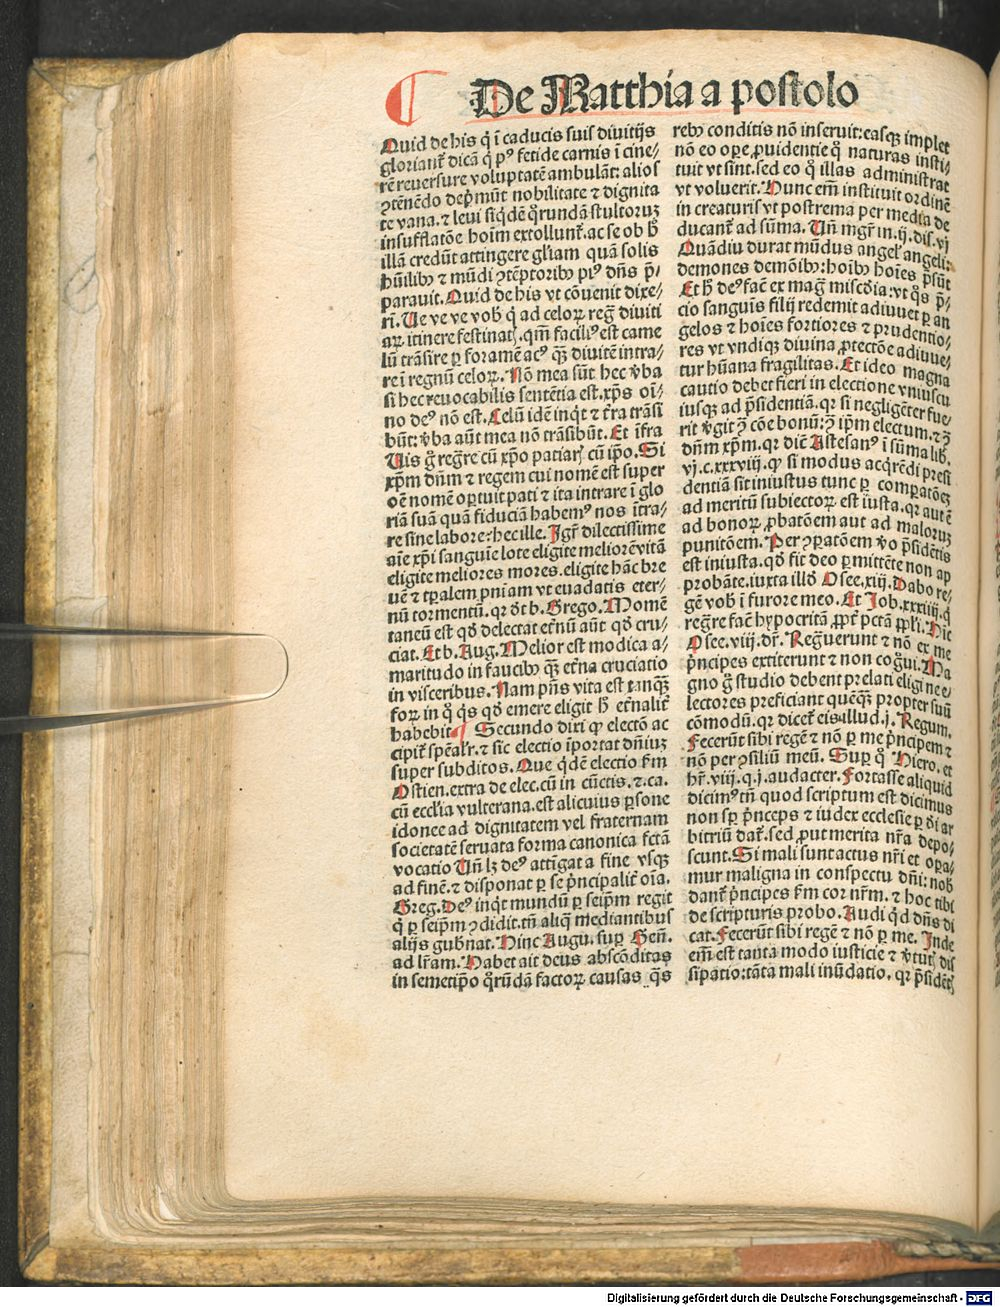 De Matthia apostolo
Quid de his q̄ ī caducis suis diuitijs
gloriant᷑ dicā q̄ pꝰ fetide carnis ī cine-
rē reuersure voluptatē ambulāt: alios
ꝯtēnēdo dep̄mūt nobilitate ⁊ dignita
te vana. ⁊ leui siq̇dē q̊rundā stultoruꝫ
insufflatōe hoīm extollunt᷑. ac se ob h̄
illā credūt attingere gl̄iam quā solis
hūilibꝫ ⁊ mūdi ꝯtēptoribꝫ piꝰ dn̄s p̄-
parauit. Quid de his vt cōuenit dixe-
rī. Ue ve ve vob̄ q̇ ad celoꝝ reg̃ diuiti
aꝝ itinere festinat᷑. qm̄ faciliꝰ est came
lū trāsire ꝑ foramē acꝰ qꝫ̄ diuitē intra-
re ī regnū celoꝝ. Nō mea sūt hec v̄ba
si hec reuocabilis sentētia est. xp̄s oī-
no deꝰ nō est. Celū idē inq̇t ⁊ t̄ra trāsi
būt: v̄ba aūt mea nō trāsibūt. Et īfra
Uis g̊ reg̃re cū xp̄o patiar᷑ cū ip̄o. Si
xp̄m dn̄m ⁊ regem cui nomē est super
oē nomē oꝑtuit pati ⁊ ita intrare ī glo
riā suā quā fiduciā habemꝰ nos ītra-
re sine labore? hec ille. Igr̄ dilectissime
aīe xp̄i sanguīe lote eligite meliorē vitā
eligite meliores mores. eligite hāc bre
uē ⁊ tꝑalem pn̄iam vt euadatis eter-
nū tormentū. qr d̄t b. Grego. Momē
taneū est qd̄ delectat et̄nū aūt qd̄ cru-
ciat. Et b. Aug. Melior est modica a-
maritudo in faucibꝫ qꝫ̄ et̄na cruciatio
in visceribus. Nam pn̄s vita est tanqꝫ̄
foꝝ in q̊ q̇s qd̄ emere eligit h̄ et̄nalit᷑
habebit. ¶ Secundo dixi ꝙ electō ac
cipit᷑ sp̄ēalr̄. ⁊ sic electio īportat dn̄iuꝫ
super subditos. Que q̇dē electio fm̄
Ostien. extra de elec. cū in cūctis. ⁊ ca.
cū eccl̄ia vulterana. est alicuius ꝑsone
idonee ad dignitatem vel fraternam
societatē seruata forma canonica fctā
vocatio Un̄ lꝫ deꝰ attīgat a fine vsqꝫ
ad finē. ⁊ disponat ꝑ se p̄ncipalit᷑ oīa.
Greg. Deꝰ inq̇t mundū ꝑ seip̄m regit
q̇ ꝑ seip̄m ꝯdidit. tn̄ aliq̄ mediantibus
alijs gub̄nat. Hinc Augu. suꝑ Gen̄.
ad lr̄am. Habet ait deus abscōditas
in semetip̄o q̊rūdā factoꝝ causas q̄s
rebꝫ conditis nō inseruit: easqꝫ implet
nō eo oꝑe ꝓuidentie q̊ naturas insti-
tuit vt sint. sed eo q̊ illas administrat
vt voluerit. Hunc em̄ instituit ordinē
in creaturis vt postrema per media de
ducant᷑ ad sūma. Un̄ mgr̄ in. ij. dis. vj
Quādiu durat mūdus angeł angeli:
demones demōibꝫ: hoībꝫ hoīes p̄sūt
Et h̄ deꝰ fac̄ ex mag̃ miscōia: vt q̊s p̄-
cio sanguīs filij redemit adiuuet ꝑ an
gelos ⁊ hoīes fortiores ⁊ prudentio-
res vt vndiqꝫ diuina ꝓtectōe adiuue-
tur hūana fragilitas. Et ideo magna
cautio debet fieri in electione vniuscu
iusqꝫ ad p̄sidentiā. qr si negligēter fue-
rit v̄git ꝯ̄ cōe bonū: ꝯ̄ ip̄m electum. ⁊ ꝯ̄
dn̄m xp̄m. qr dic̄ Astesanꝰ ī sūma lib.
vj. c. xxxviij. ꝙ si modus acq̇rēdi presi
dentiā sit iniustus tunc ꝑ comꝑatōeꝫ
ad meritū subiectoꝝ est iusta. qr aut ē
ad bonoꝝ ꝓbatōem aut ad maloruꝫ
punitōem. Per ꝯꝑatōem v̄o p̄sidētis
est iniusta. qd̄ fit deo ꝑmittēte non ap
probāte. iuxta illd̄ Osee. xiij. Dabo re-
gē vob̄ ī furore meo. Et Job. xxxiiij. q̇
reg̃re fac̄ hypocritā ꝓpt᷑ pctā ppl̄i. Hic
Osee. viij. dr̄. Reg̃uerunt ⁊ nō ex me
p̄ncipes extiterunt ⁊ non cog̃ui. Ma
gno g̊ studio debent prelati eligi ne e-
lectores preficiant quēqꝫ propter suū
cōmodū. qr dicet᷑ eis illud. j. Regum.
Fecerūt sibi regē ⁊ nō ꝑ me p̄ncipem ⁊
nō per ꝯsiliū meū. Suꝑ q̊ Hiero. et
hr̄. viij. q. j. audacter. Fortasse aliquid
dicimꝰ tn̄ quod scriptum est dicimus
non sꝑ p̄nceps ⁊ iudex ecclesie ꝑ d̄i ar
bitriū dat᷑. sed ꝓut merita nr̄a depo-
scunt. Si mali sunt actus nr̄i et oꝑa-
mur maligna in conspectu dn̄i: nob̄
dant᷑ p̄ncipes fm̄ cor nr̄m. ⁊ hoc tibi
de scripturis probo. Audi q̇d dn̄s di
cat. Fecerūt sibi regē ⁊ nō ꝑ me. Inde
em̄ est tanta modo iusticie ⁊ v̄tut᷑ dis
sipatio: tāta mali inūdatio. qr p̄sidēt᷑
Digitalisierung gefördert durch die Deutsche Forschungsgemeinschaft - DFG